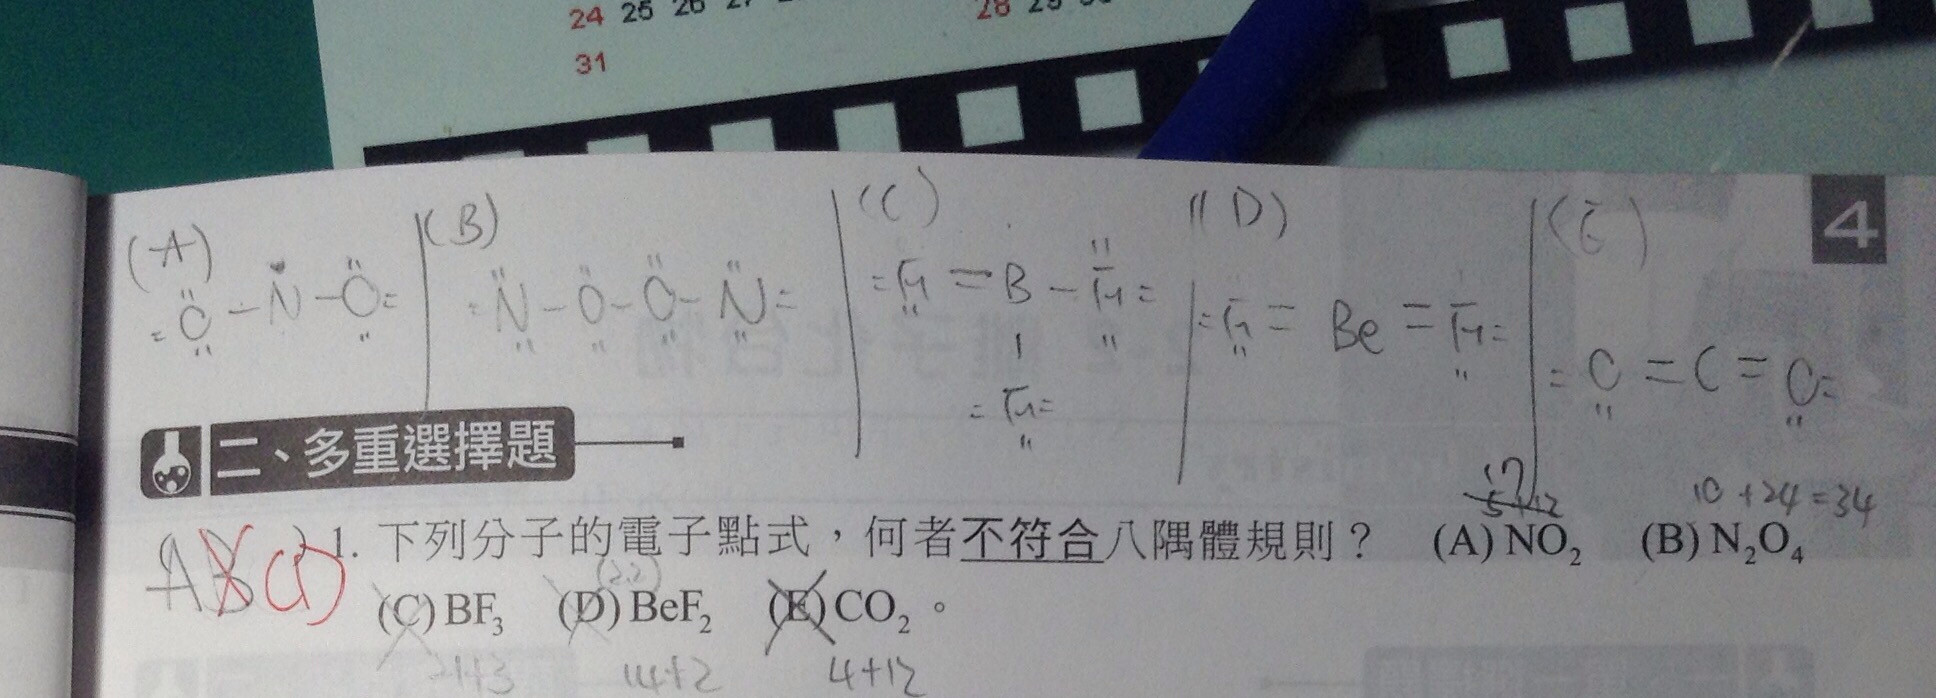 24 25 26 27
28 29 30
31
4
(A) (B) (C) (D) (E)
O-N-O N-O-O-N F=B-F F=Be=F O=C=O
F
二、多重選擇題
17
5+12 10+24=34
1. 下列分子的電子點式，何者不符合八隅體規則？ (A) NO₂ (B) N₂O₄
(C) BF₃ (D) BeF₂ (E) CO₂。
21+3 14+2 4+12